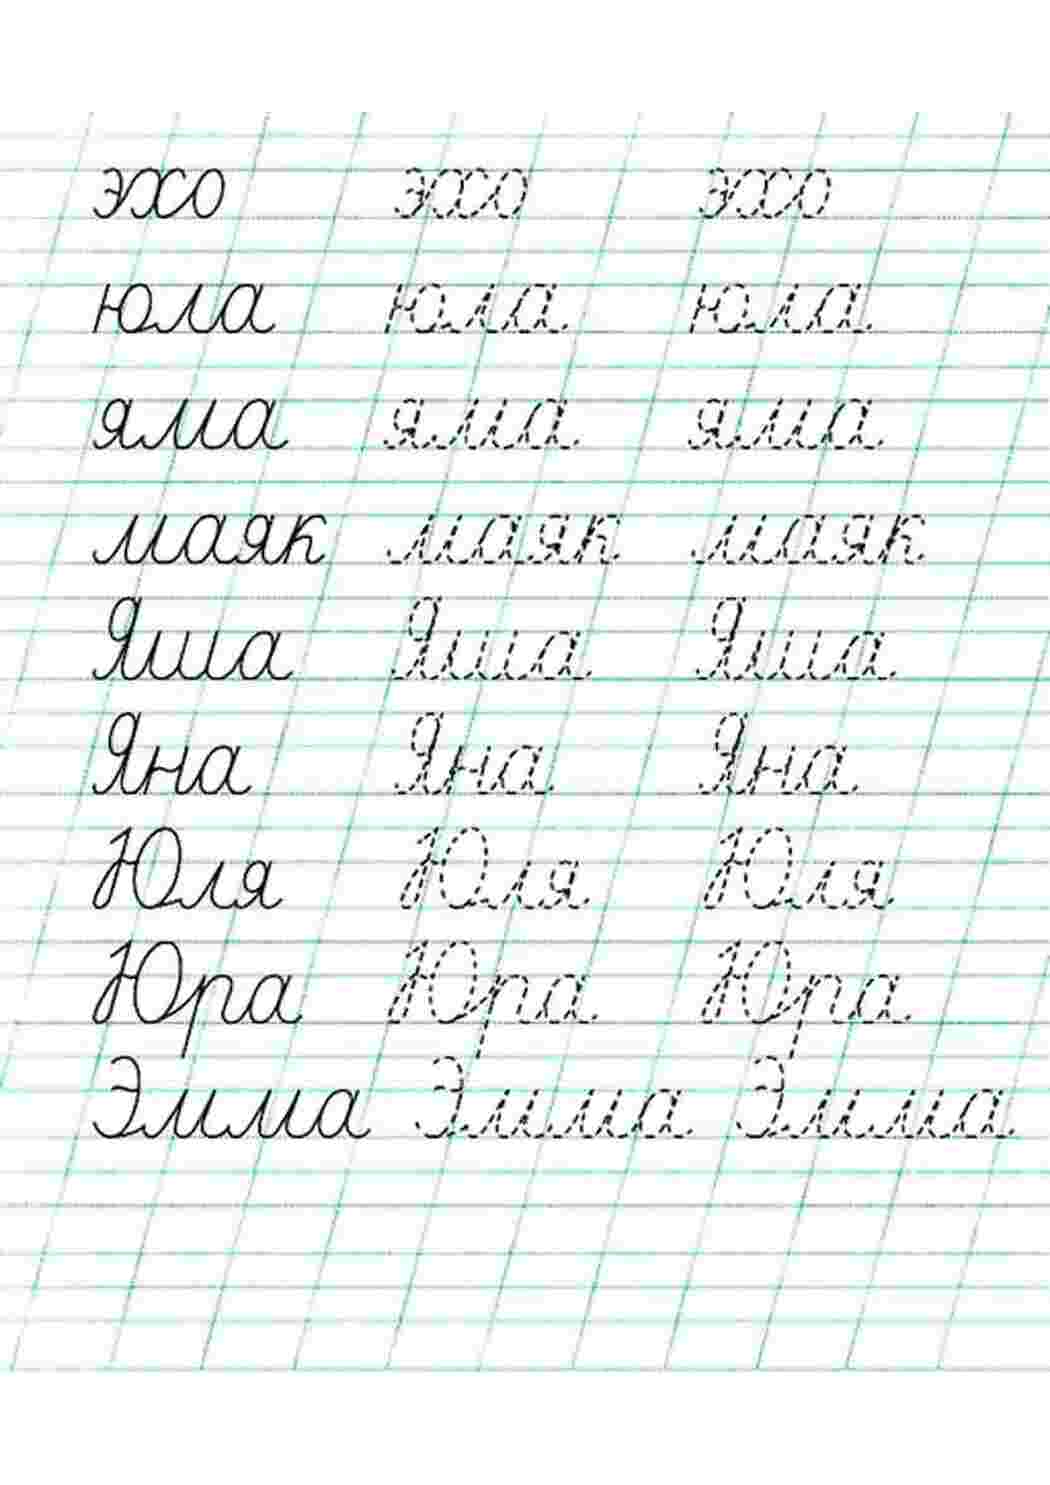 эхо эхо эхо
юла юла юла
яма яма яма
маяк маяк маяк
Яша Яша Яша
Яна Яна Яна
Юля Юля Юля
Юра Юра Юра
Эмма Эмма Эмма